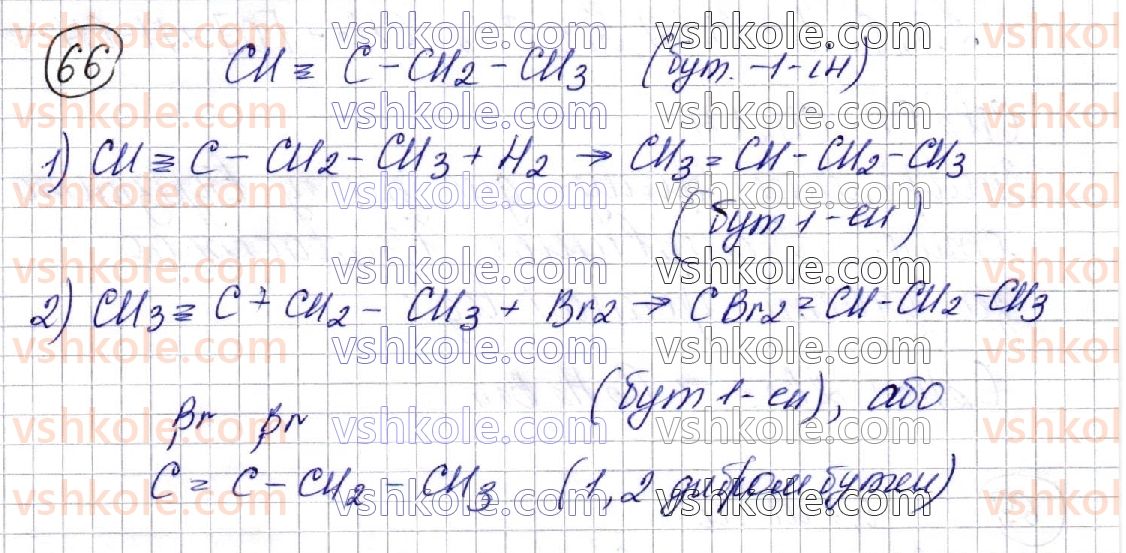 66
CH≡C-CH2-CH3 (бут.-1-ін)
1) CH≡C-CH2-CH3 + H2 → CH3=CH-CH2-CH3
(бут 1-ен)
2) CH3≡C+CH2-CH3 + Br2 → CBr2=CH-CH2-CH3
(бут 1-ен), або
Br Br
C=C-CH2-CH3 (1,2 дибромбутен)
vshkole.com